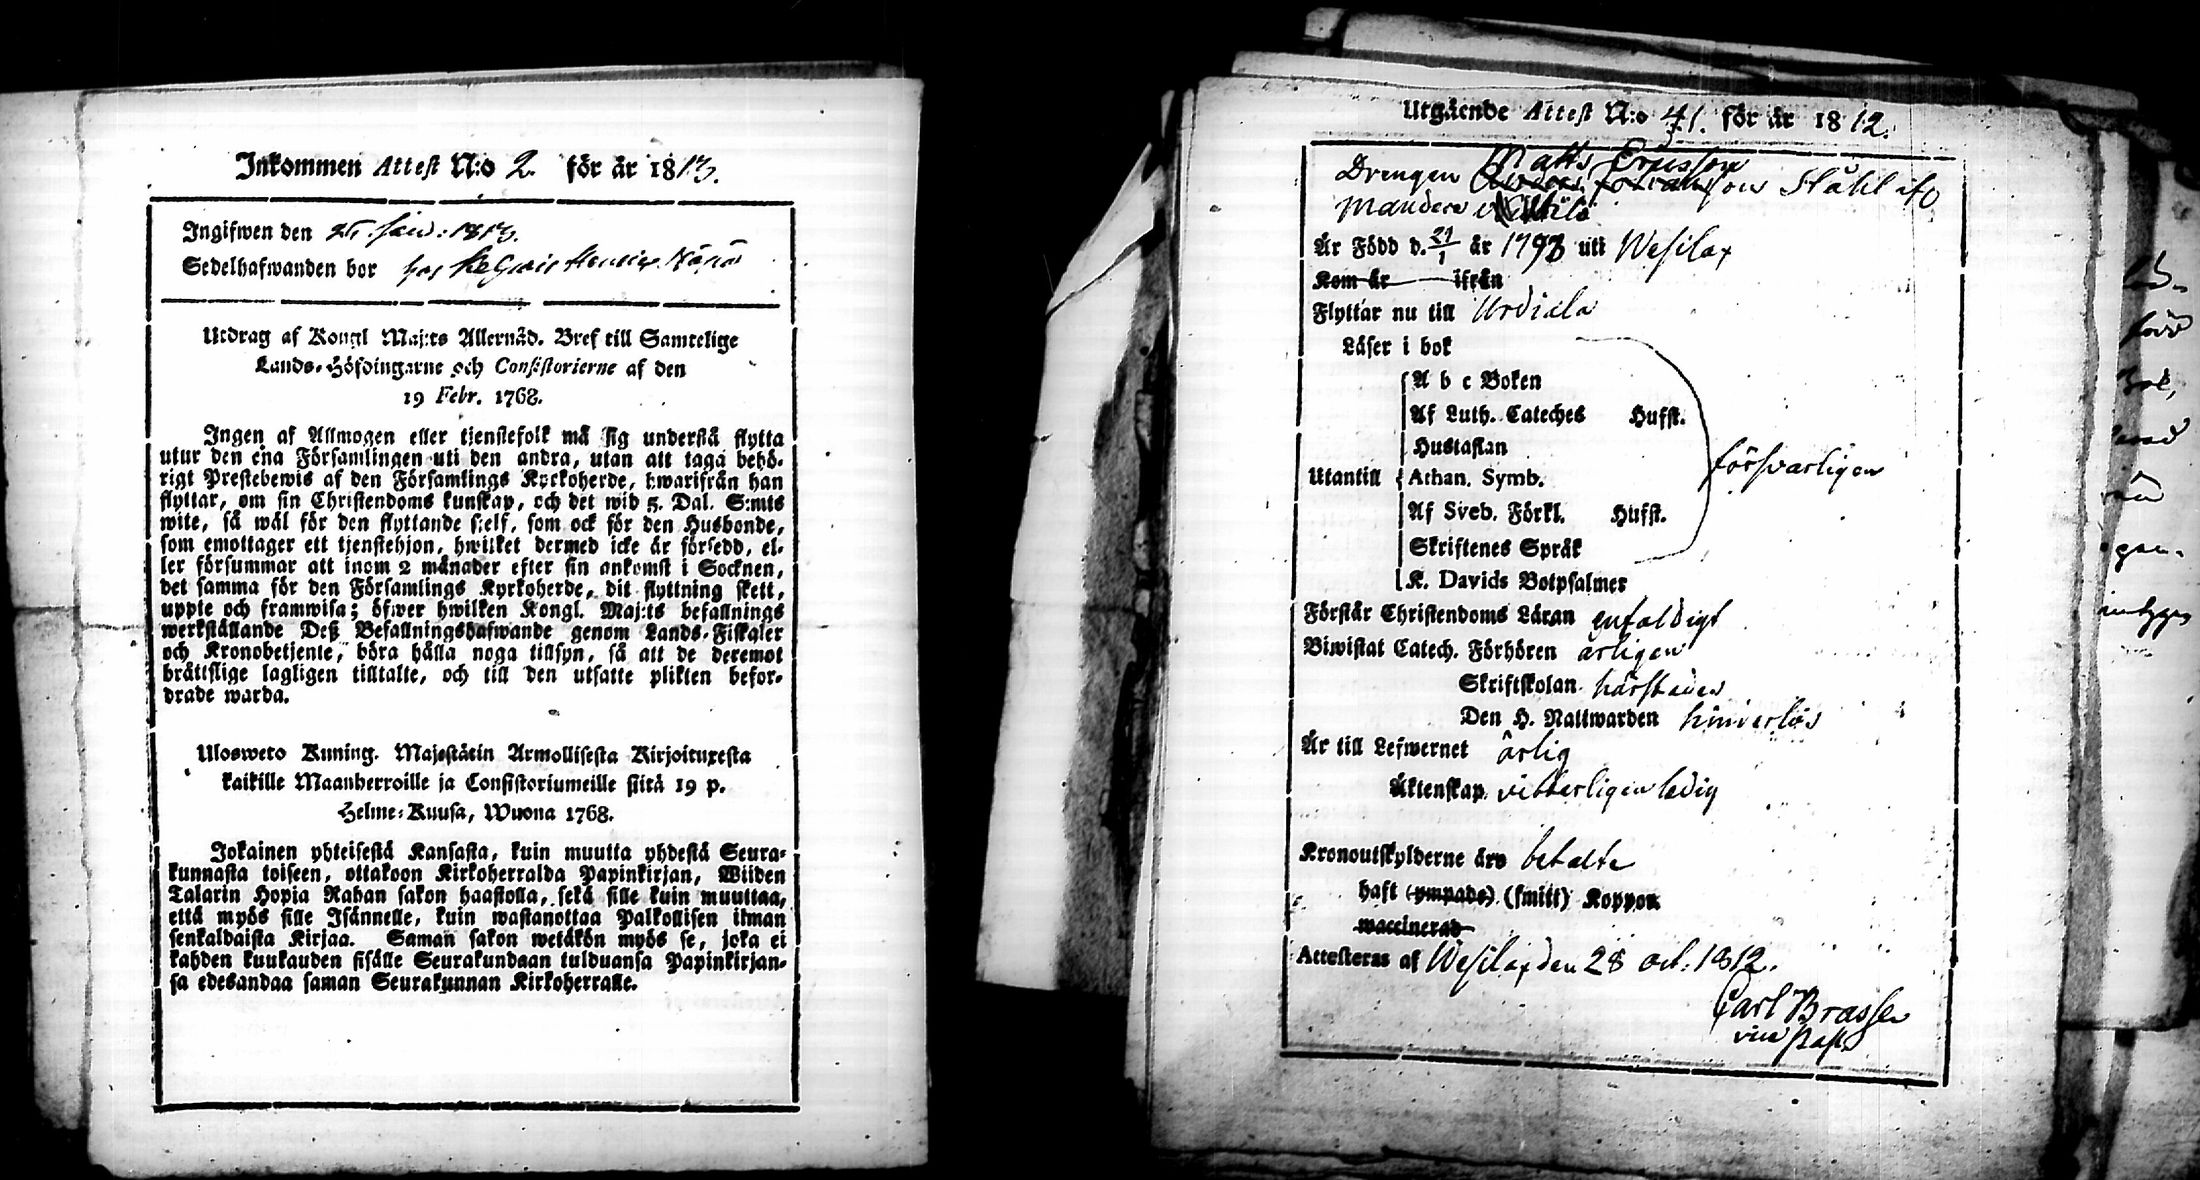 Inkommen Attest N:o 2. för år 1813.
Ingifwen den Jan: 1813.
Sedelhafwanden bor hos
Utdrag af Kongl Maj:ts Allernåd. Bref till Samtelige
Lands-Höfdingarne och Consistorierne af den
19 Febr. 1768.
Ingen af Allmogen eller tjenstefolk må sig understå flytta
utur den ena Församlingen uti den andra, utan att taga behö-
rigt Prestebewis af den Församlings Kyrkoherde, hwarifrån han
flyttar, om sin Christendoms kunskap, och det wid 5. Dal. S:mts
wite, så wäl för den flyttande sjelf, som ock för den Husbonde,
som emottager ett tjenstehjon, hwilket dermed icke är försedd, el-
ler försummar att inom 2 månader efter sin ankomst i Socknen,
det samma för den Församlings Kyrkoherde, dit flyttning skett,
uppte och framwisa; öfwer hwilken Kongl. Maj:ts befallnings
werkställande Deß Befallningshafwande genom Lands-Fiskaler
och Kronobetjente, böra hålla noga tillsyn, så att de deremot
bråttslige lagligen tilltalte, och till den utsatte plikten befor-
drade warda.
Ulosweto Kuning. Majestätin Armollisesta Kirjoituxesta
kaikille Maanherroille ja Consistoriumeille siitä 19 p.
Helme-Kuusa, Wuona 1768.
Jokainen yhteisestä Kansasta, kuin muutta yhdestä Seura-
kunnasta toiseen, ottakoon Kirkoherralda Papinkirjan, Wiiden
Talarin Hopia Rahan sakon haastolla, sekä sille kuin muuttaa,
että myös sille Isännelle, kuin wastanottaa Palkollisen ilman
senkaldaista Kirjaa. Saman sakon wetäkön myös se, joka ei
kahden kuukauden sisälle Seurakundaan tulduansa Papinkirjan-
sa edesandaa saman Seurakunnan Kirkoherralle.
Utgående Attest N:o 41. för år 1812.
Drengen Matts Ericsson Ståhl ifr
Är Född d. 21/1 år 1793 uti Wesilax
Kom år ifrån
Flyttar nu till Urdiala
Läser i bok
A b c Boken
Af Luth. Cateches Hufst.
Hustaflan
Utantill Athan. Symb.
försvarligen
Af Sveb. Förkl. Hufst.
Skriftenes Språk
K. Davids Botpsalmer
Förstår Christendoms Läran enfaldigt
Biwistat Catech. Förhören årligen
Skriftskolan härstädes
Den H. Nattwarden hinderlös
Är till Lefwernet ärlig
Äktenskap vitterligen ledig
Kronoutskylderne äro betalte
haft (ympade) (smitt) Koppor
waccinerad
Attesteras af Wesilax den 28 oct: 1812.
Carl Brasse
vice past.